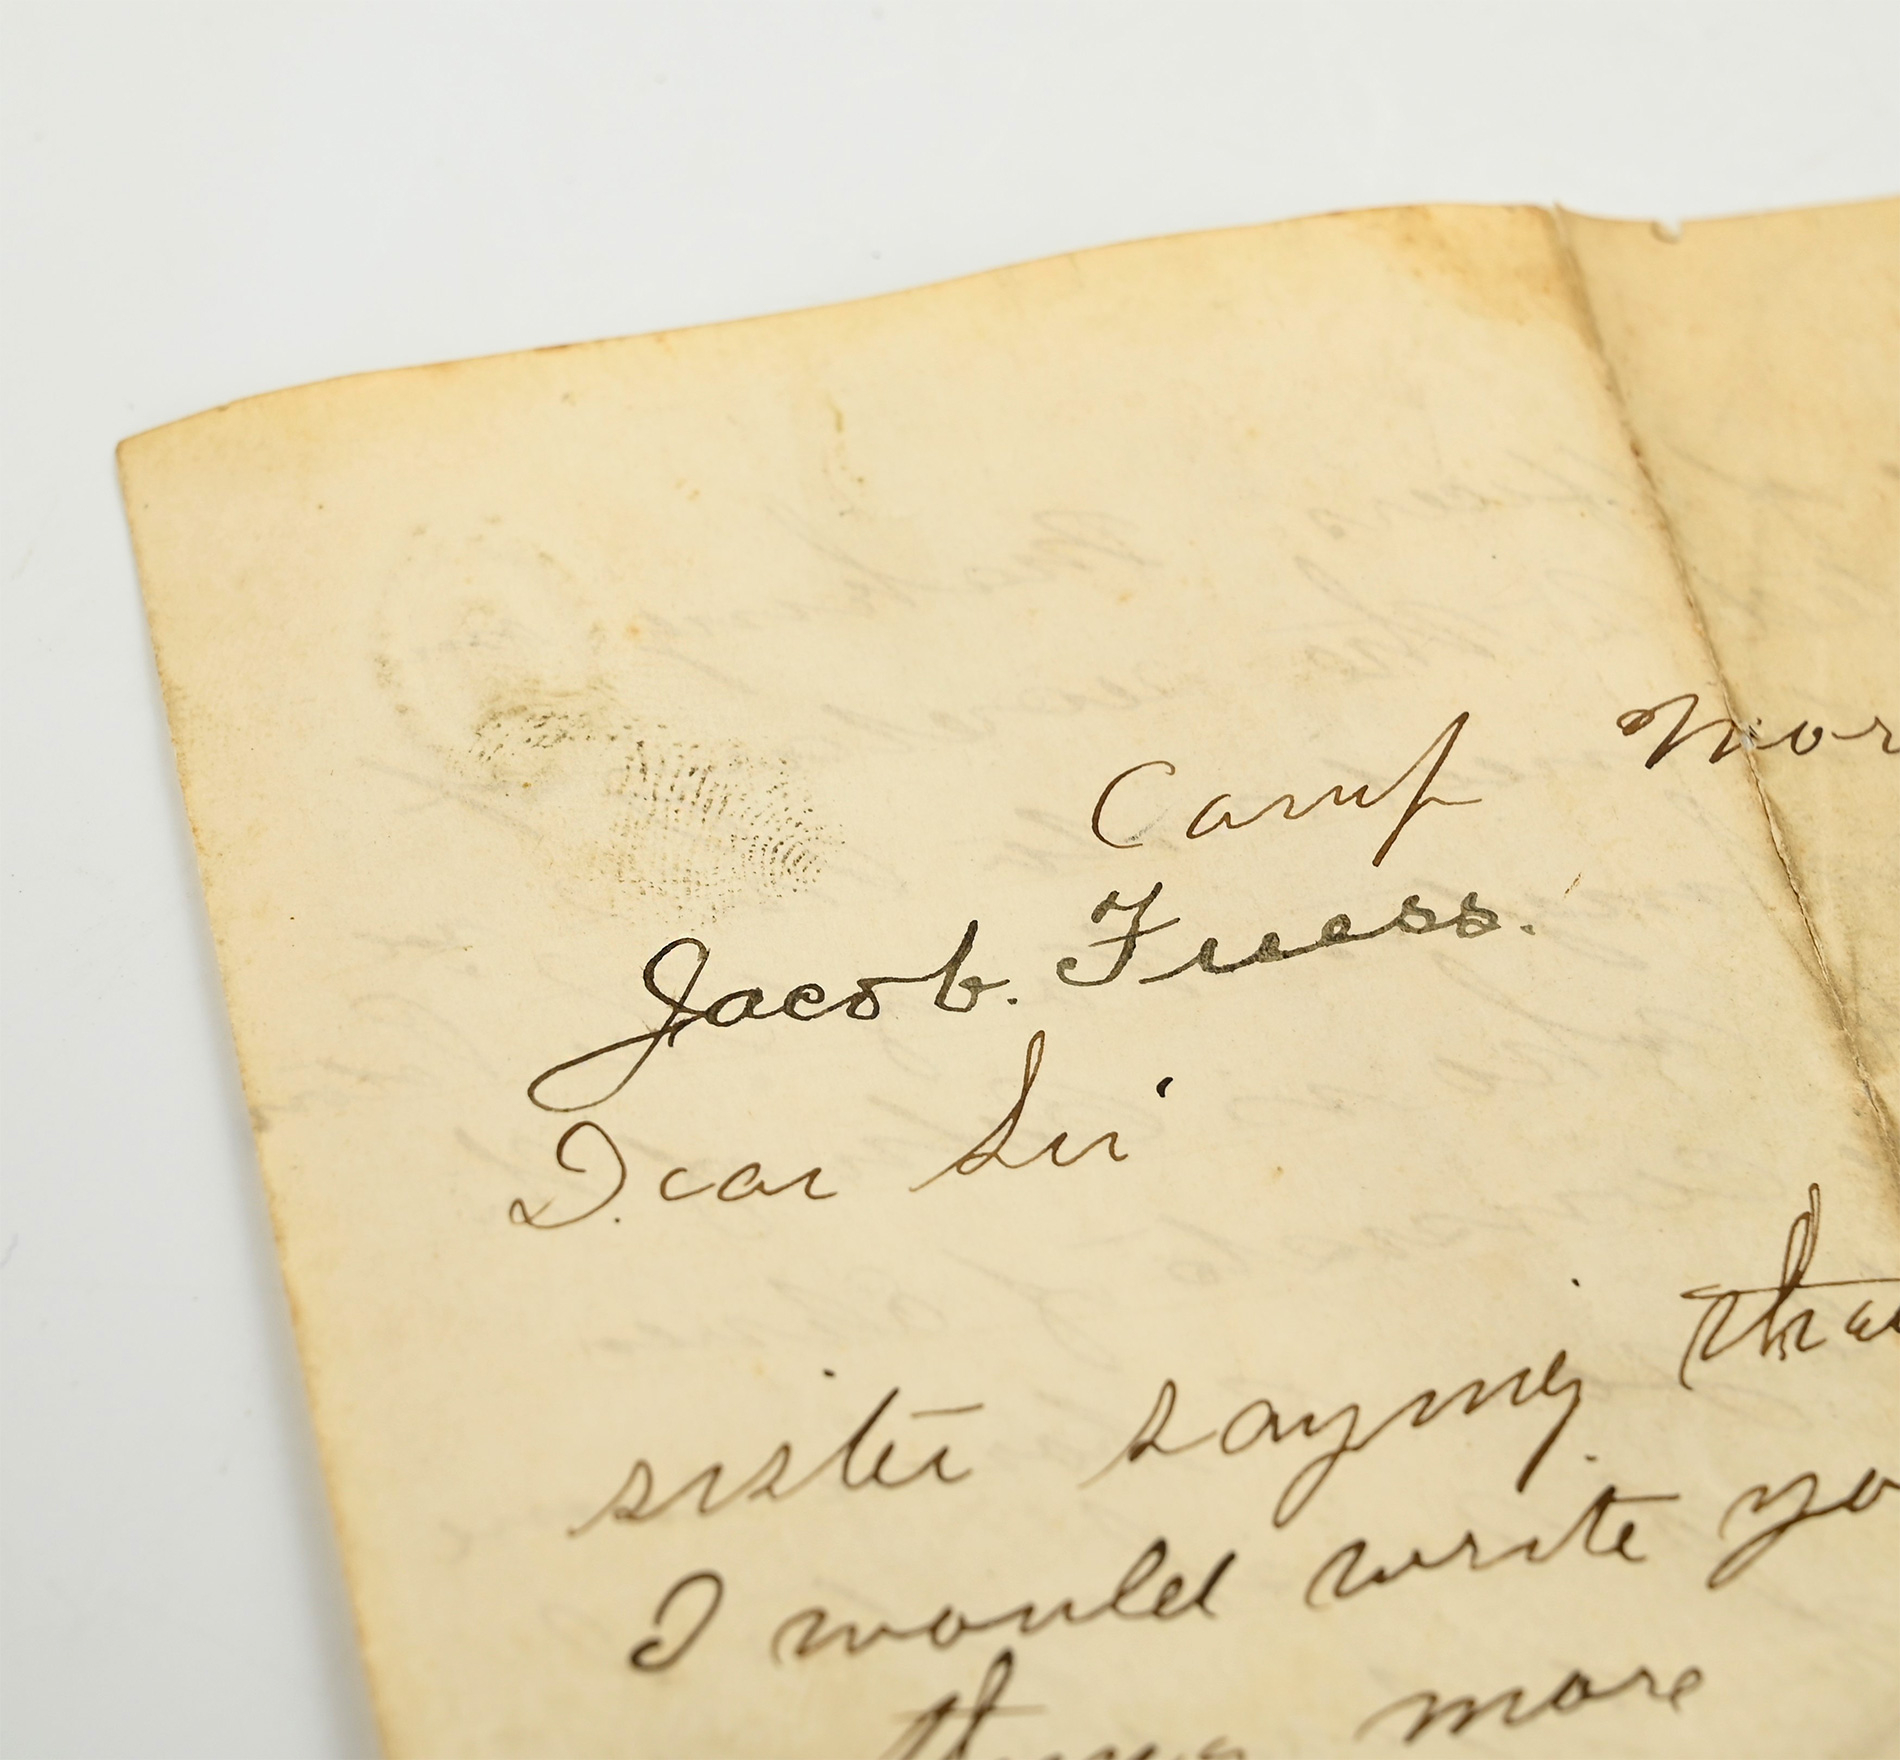 Camp Mor
Jacob. Fuess.
Dear Sir
sister saying tha
I would write yo
more